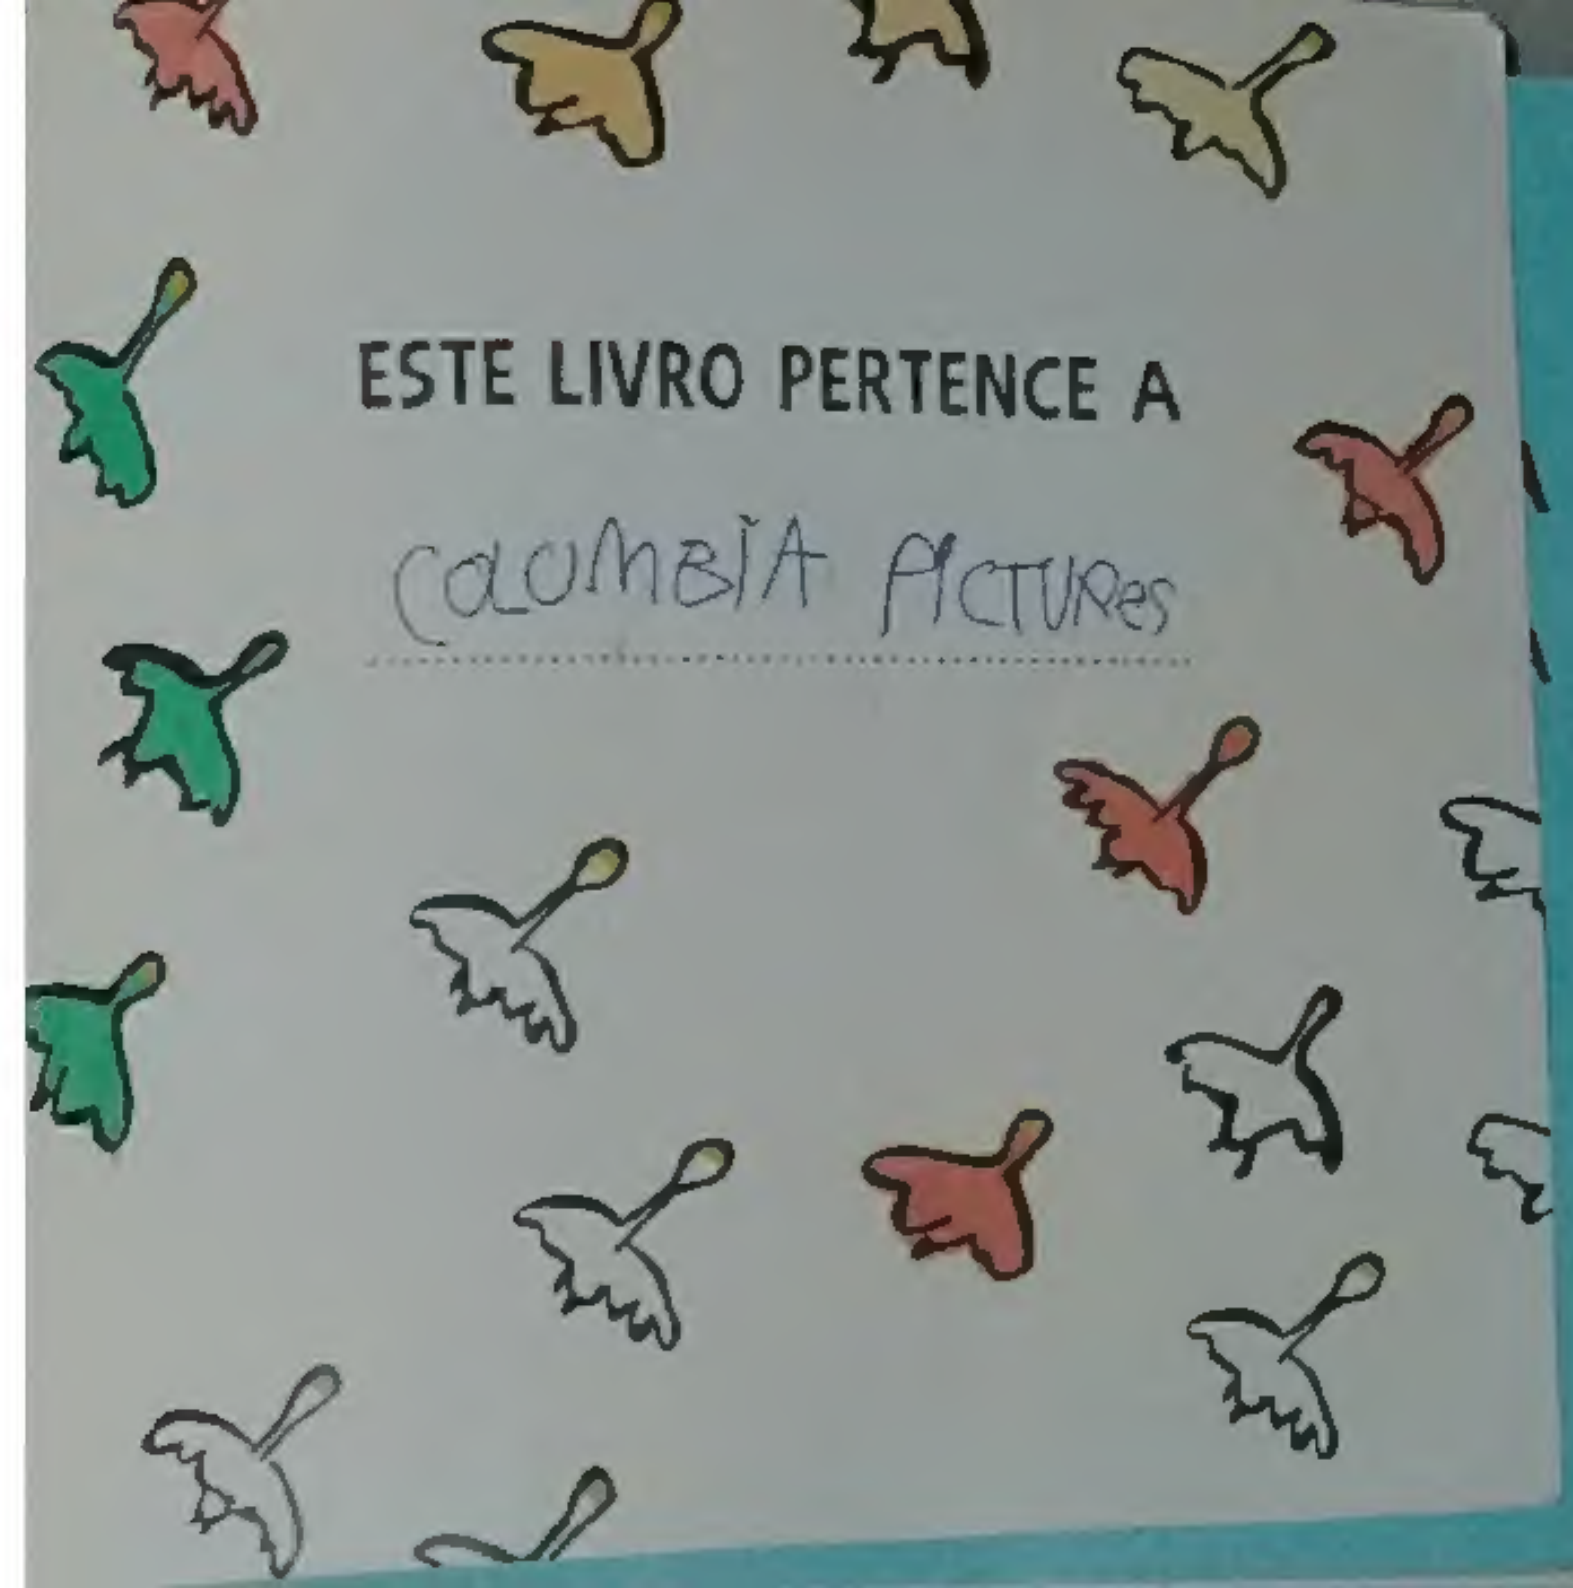 ESTE LIVRO PERTENCE A
COLUMBIA PICTURes